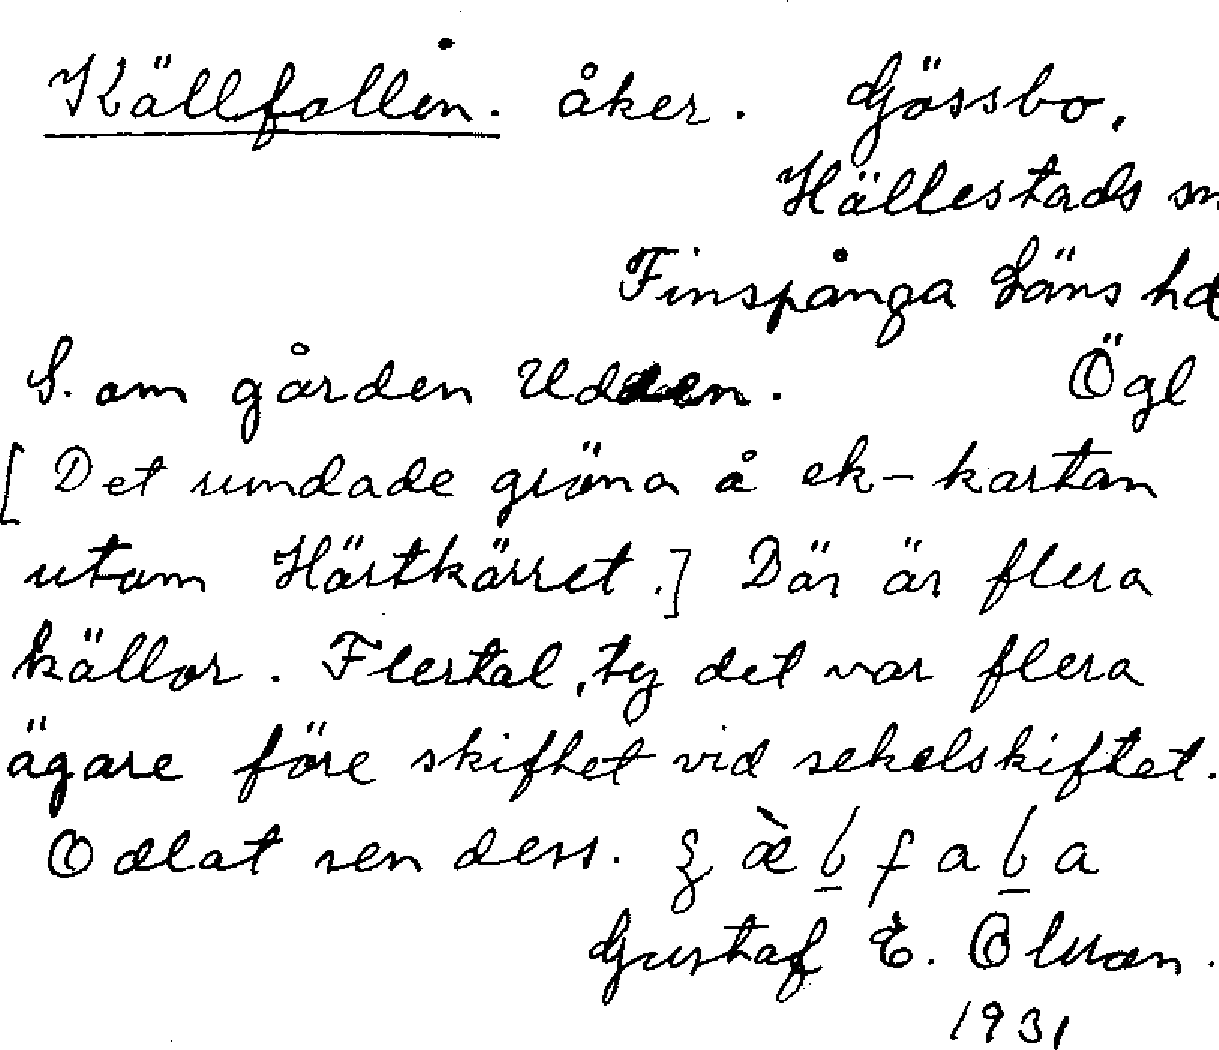 Källfallen. åker. Gössbo,
Hällestads sn
Finspånga Läns hd
S. om gården Udden. Ögl
[Det rundade gröna å ek-kartan
utom Hörtkärret.] Där är flera
källor. Flertal, ty det var flera
ägare före skiftet vid sekelskiftet.
Odlat sen dess.
Gustaf E. Olsson.
1931